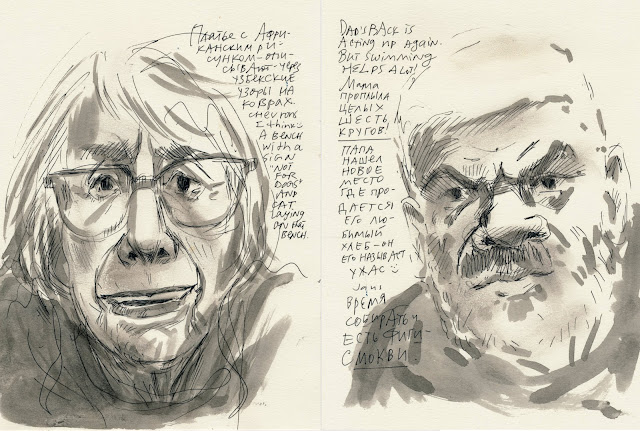 Платье с Афри-
канским ри-
сунком-опи-
сывает-через
узбекские
узоры на
коврах.
chevrons
I think
A bench
with a
sign
"NOT
FOR
DOGS"
AND
CAT
LAYING
BENCH.
DAD'S BACK is
Acting up again.
But swimming
HELPS A LOT!
Мама
проплыла
целых
шесть
кругов!
ПАПА
НАШЕЛ
НОВОЕ
МЕСТО
ГДЕ ПРО-
ДАЕТСЯ
ЕГО ЛЮ-
БИМЫЙ
ХЛЕБ-ОН
ЕГО НАЗЫВАЕТ
УЖАС
ВРЕМЯ
СОБИРАТЬ И
ЕСТЬ ФИГИ-
СМОКВИ.